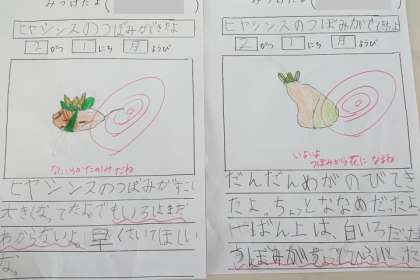 みつけたよ(
ヒヤシンスのつぼみがでたよ
2 がつ 1 にち 月 ようび
ヒヤシンスのつぼみがすこし
大きくなってたよ。でもいろはまだ
わからないよ。早くさいてほしい
な。
みつけたよ(
ヒヤシンスのつぼみがでてたよ
2 がつ 1 にち 月 ようび
いよいよ
つぼみから花になるね
だんだんめがのびてき
たよ。ちょっとななめだったよ。
一ばん上は、白いろだった